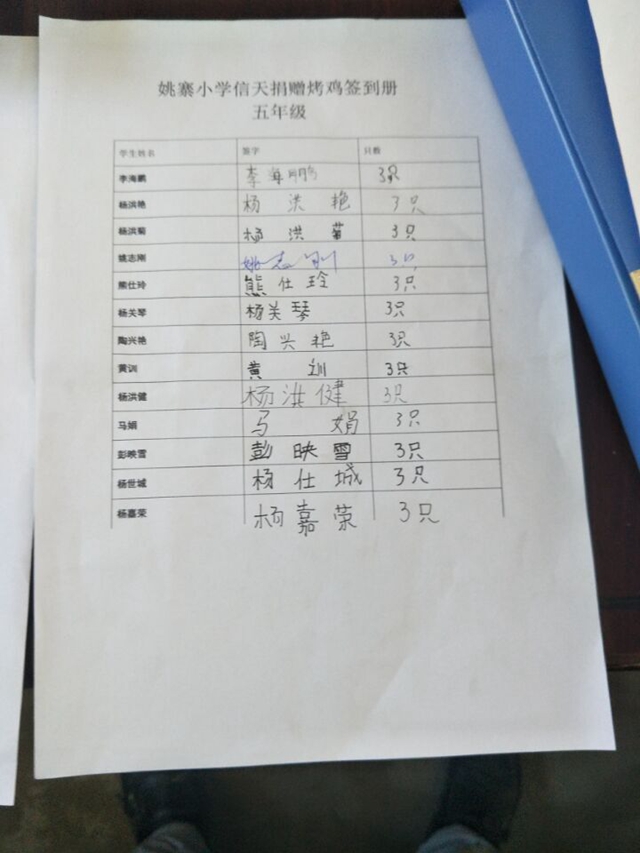 姚寨小学信天捐赠烤鸡签到册
五年级
学生姓名 签字 只数
李海鹏 李海鹏 3只
杨洪艳 杨洪艳 3只
杨洪菊 杨洪菊 3只
姚志刚 姚志刚 3只
熊仕玲 熊仕玲 3只
杨关琴 杨关琴 3只
陶兴艳 陶兴艳 3只
黄训 黄训 3只
杨洪健 杨洪健 3只
马娟 马娟 3只
彭映雪 彭映雪 3只
杨世城 杨仕城 3只
杨嘉荣 杨嘉荣 3只